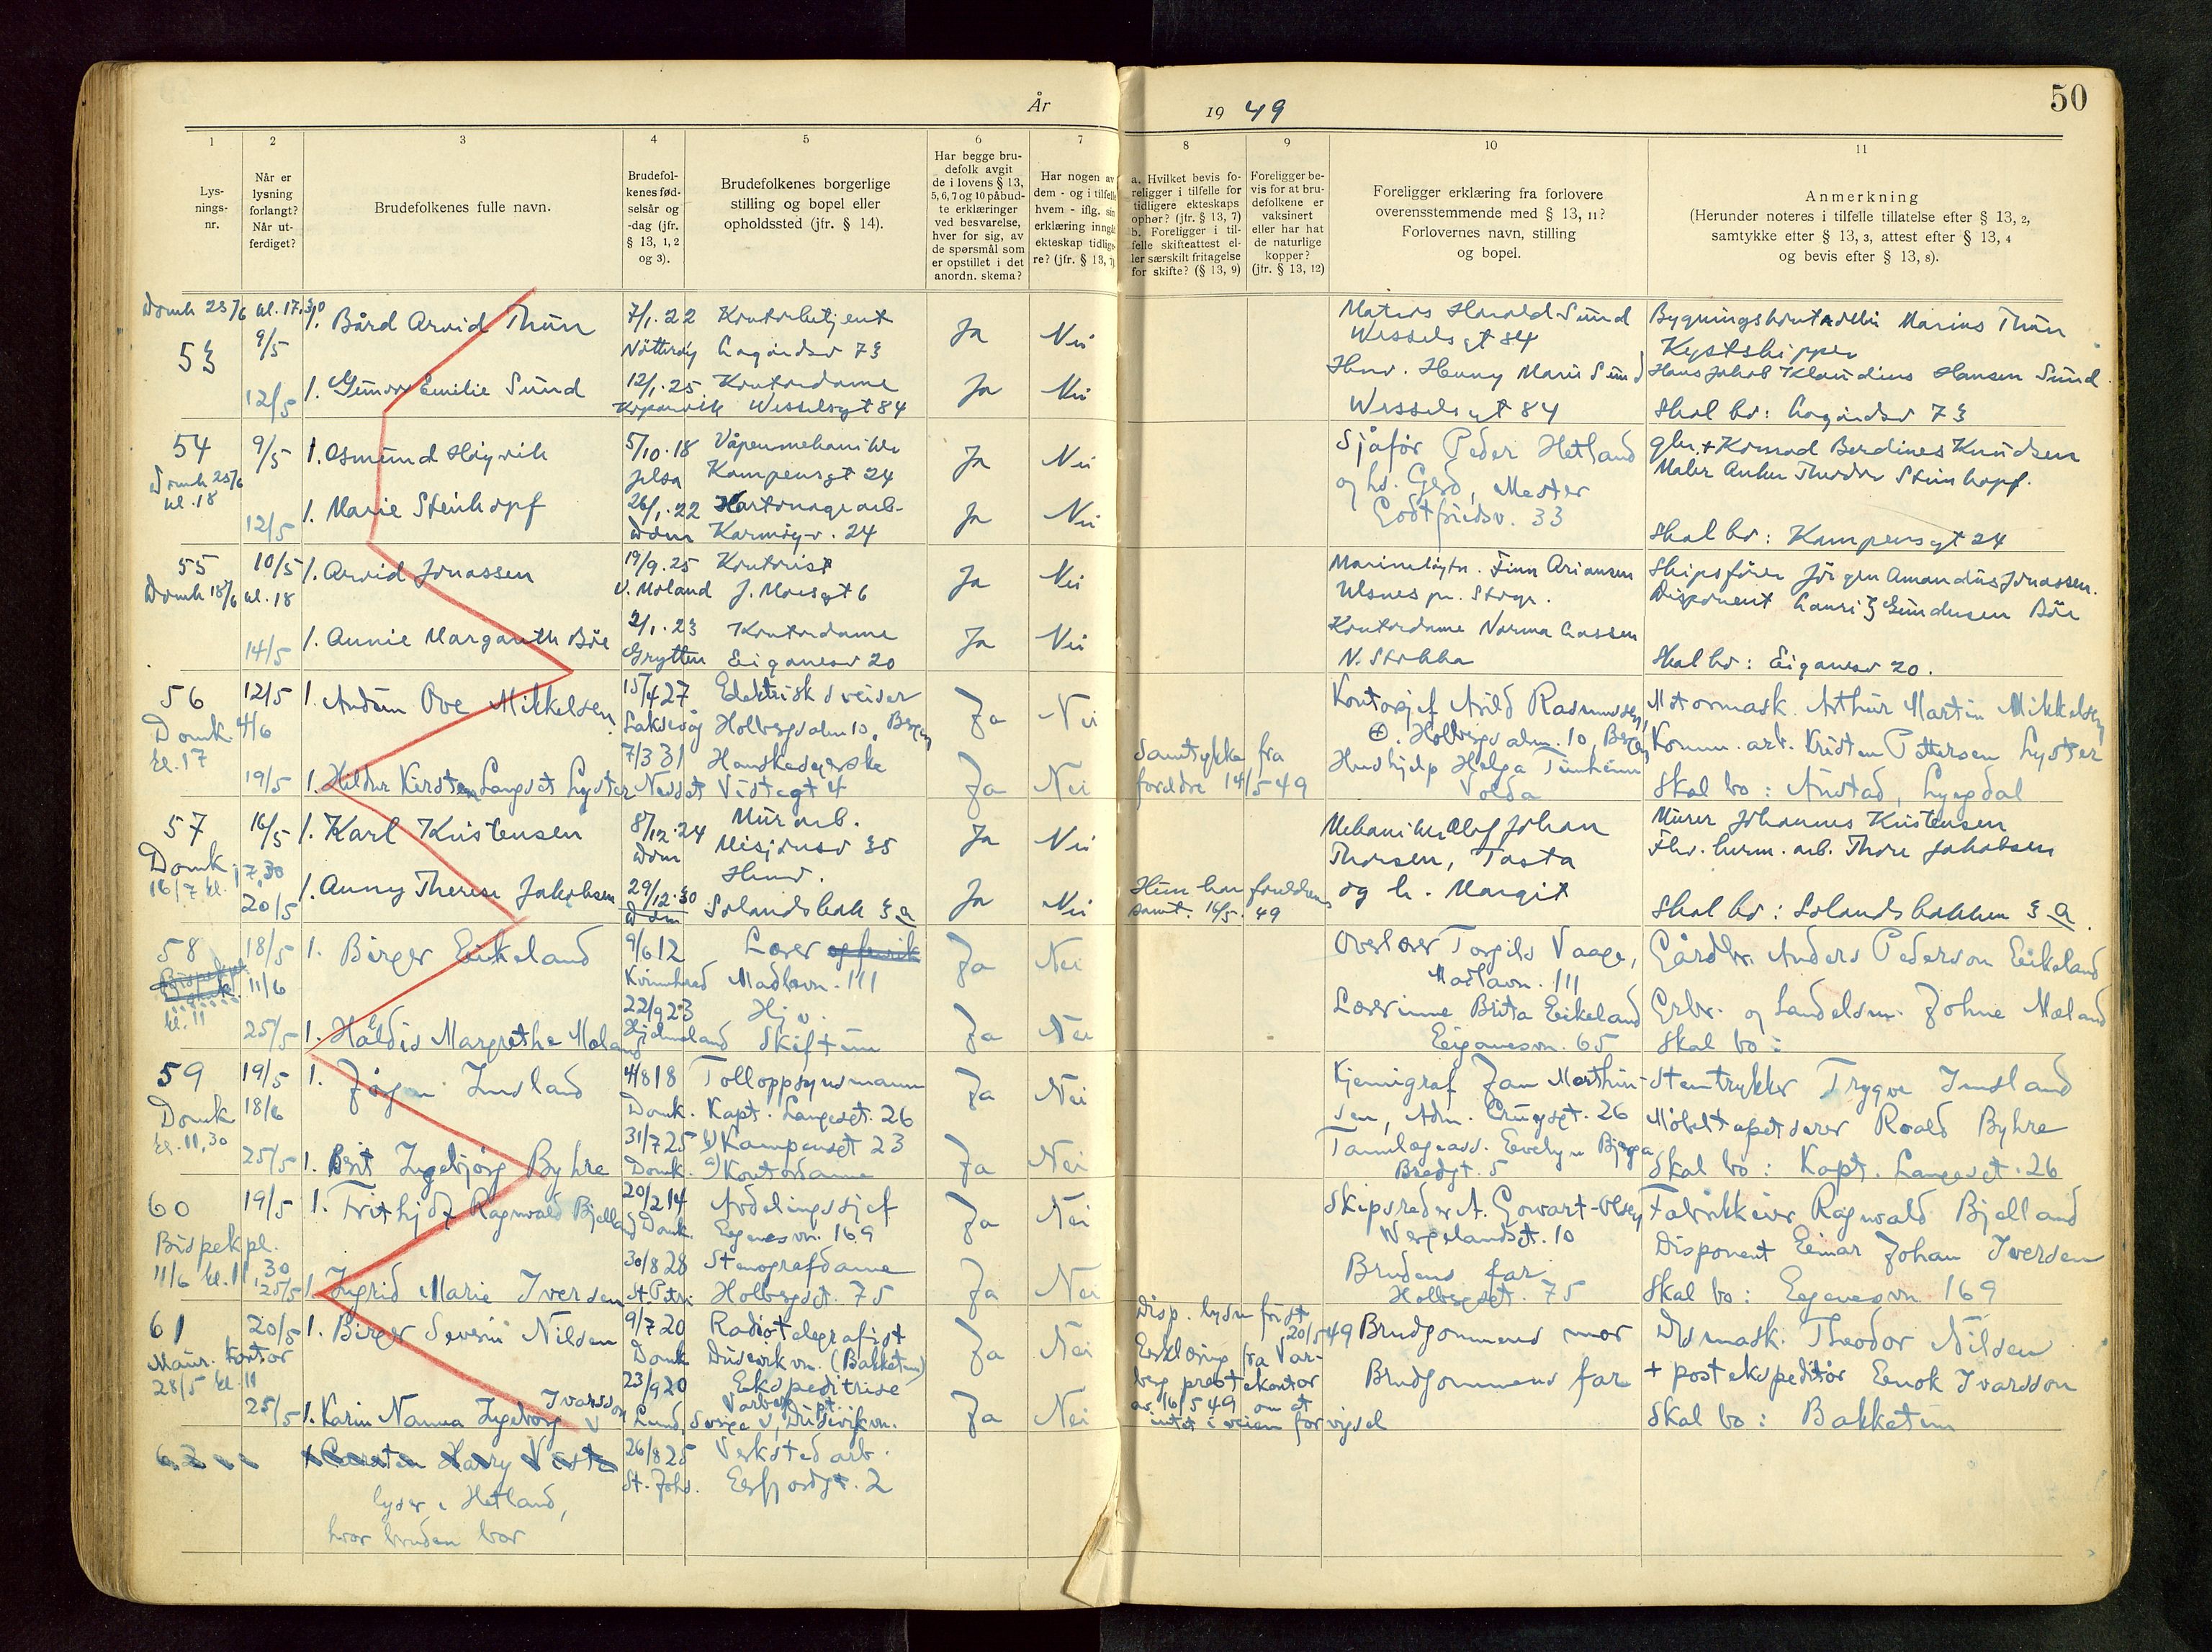 År 1949
50
1 2 3 4 5 6 7 8 9 10 11
Lys-
nings-
nr.
Når er
lysning
forlangt?
Når ut-
ferdiget?
Brudefolkenes fulle navn.
Brudefol-
kenes fød-
selsår og
-dag (jfr.
§ 13, 1, 2
og 3).
Brudefolkenes borgerlige
stilling og bopel eller
opholdssted (jfr. § 14).
Har begge bru-
defolk avgit
de i lovens § 13,
5, 6, 7 og 10 påbud-
te erklæringer
ved besvarelse,
hver for sig, av
de spørsmål som
er opstillet i det
anordn. skema?
Har nogen av
dem - og i tilfelle
hvem - iflg. sin
erklæring inngått
ekteskap tidlige-
re? (jfr. § 13, 7)
a. Hvilket bevis fo-
religger i tilfelle for
tidligere ekteskaps
ophør? (jfr. § 13, 7)
b. Foreligger i til-
felle skifteattest el-
ler særskilt fritagelse
for skifte? (§ 13, 9)
Foreligger be-
vis for at bru-
defolkene er
vaksinert
eller har hat
de naturlige
kopper?
(jfr. § 13, 12)
Foreligger erklæring fra forlovere
overensstemmende med § 13, 11?
Forlovernes navn, stilling
og bopel.
Anmerkning
(Herunder noteres i tilfelle tillatelse efter § 13, 2,
samtykke efter § 13, 3, attest efter § 13, 4
og bevis efter § 13, 8).
Domk 25/6 kl. 17.30
53 9/5 1. Bård Arvid Thun 7/1.22 Kontorbetjent Ja Nei Harald Sund Marius Thun
Nøtterøy Lagårdsv 73 Wesselsgt 84 Kystskipper
12/5 1. Gunvor Emilie Sund 12/1.25 Kontordame Ja Nei Husv. Henny Marie Sund Hans Jakob Klaudius Hansen Sund
Kopervik Wesselsgt 84 Wesselsgt 84 Skal bo: Lagårdsv 73
54 9/5 1. Osmund Høyvik 5/10.18 Våpenmekaniker Ja Nei Sjåfør Peder Hetland gbr. + Konrad Berdines Knudsen
Domk 25/6 Jelsa Kampensgt 24 og h. Gerd, Maler Anker Thodor Steinkopf.
kl. 18
12/5 1. Marie Steinkopf 26/1.22 Kartonagearb. Ja Nei Godtfredsv. 33
Dom Karmøyv. 24 Skal bo: Kampensgt 24
55 10/5 1. Arvid Jonassen 19/9.25 Kontorist Ja Nei Finn Ariansen Skipsfører Jørgen Amandus Jonassen.
Domk 18/6 kl. 18 V. Moland J. Moesgt 6 Ulsnes pr. Disponent Gundersen Bøe
14/5 1. Annie Margareth Bøe 2/1.23 Kontordame Ja Nei Kontordame Norma Lassen
Grytten Eiganesv 20 N. Stokka Skal bo: Eiganesv 20.
56 12/5 1. Audun Ove Mikkelsen 15/4 27 Elektrisk sveiser Ja Nei Kontorsjef Arild Rasmussen, Motormask. Arthur Martin Mikkelsen
Domk. 4/6 Laksevåg Holbergsalm 10, Bergen Holbergsalm. 10, Bergen Komm. arb. Kristen Pettersen Lyster
kl. 17
19/5 1. Hildur Kirsten Langset Lyster 7/3 31 Hanskesyerske Ja Nei Samtykke fra Hushjelp Helga
Nesset Vistegt 4 foreldre 14/5 49 Volda Skal bo: Lyngdal
57 16/5 1. Karl Kristensen 8/12.24 Murarb. Ja Nei Mekaniker Olaf Johan Murer Johannes Kristensen
Domk Dom Misjonsv 35 Thorsen, Tasta Thore Jakobsen
16/7 kl. 17,30
20/5 1. Anny Therese Jakobsen 29/12.30 Husv. Ja Nei Hun har foreldres og h. Margit
Dom Solandsbak 3 a samt. 16/5. 49 Skal bo: Solandsbakken 3 a.
58 18/5 1. Birger Eikeland 9/6 12 Lærer Ja Nei Overlærer Torgils Vaage, Gårdbr. Anders Pederson Eikeland
11/6 Kvinnherad Madlavn. 111 Madlavn. 111
kl. 11
25/5 1. Haldis Margrethe Mæland 22/9 23 Hjv. Ja Nei Lærerinne Brita Eikeland Grbr. og Johne Mæland
Hjelmeland Skiftun Eiganesvn. 65 Skal bo:
59 19/5 1. Jørgen Imsland 4/8 18 Tolloppsynsmann Ja Nei Kjemigraf Jan Marthin- Stentrykker Trygve Imsland
Domk 18/6 Domk. Kapt. Langesgt. 26 sen, Adm. Cruysgt. 26 Møbeltapetserer Roald Byhre
kl. 11,30
25/5 1. Berit Ingebjørg Byhre 31/7 25 b) Kampensgt 23 Ja Nei Tannlegeass. Evelyn Bjerga
Domk. a) Kontordame Bredgt. 5 Skal bo: Kapt. Langesgt. 26
60 19/5 1. Frithjof Ragnvald Bjelland 20/2 14 Avdelingssjef Ja Nei Skipsreder A. Gowart-Olsen Fabrikkeier Ragnvald Bjelland
Bispekpl. Domk. Egenesvn. 169 Wergelandsgt. 10 Disponent Einar Johan Iversen
11/6 kl. 11,30
25/5 1. Ingrid Marie Iversen 30/8 28 Stenografdame Ja Nei Brudens far
St. Petri Holbergsgt. 75 Holbergsgt. 75 Skal bo: Egenesvn 169
61 20/5 1. Birger Severin Nilsen 9/7 20 Radiotelegrafist Ja Nei Disp. lysn frist 20/5 49 Brudgommens mor Theodor Nilsen
kontor Domk Dusevikvn. (Bakketun) Erklæring fra Var-
28/5 kl. 11
25/5 1. Karin Nanna Ingeborg Ivarsson 23/9 20 Ekspeditrise Ja Nei berg prestekontor Brudgommens far + postekspeditør Enok Ivarsson
Lund, Sverige Dusevikvn. av 16/5 49 om at
intet i veien for vigsel Skal bo: Bakketun
62 1. Karsten Harry Viste 26/8 25 Verkstedarb.
St. Johs. Erfjordgt. 2
lyser i Hetland,
hvor bruden bor